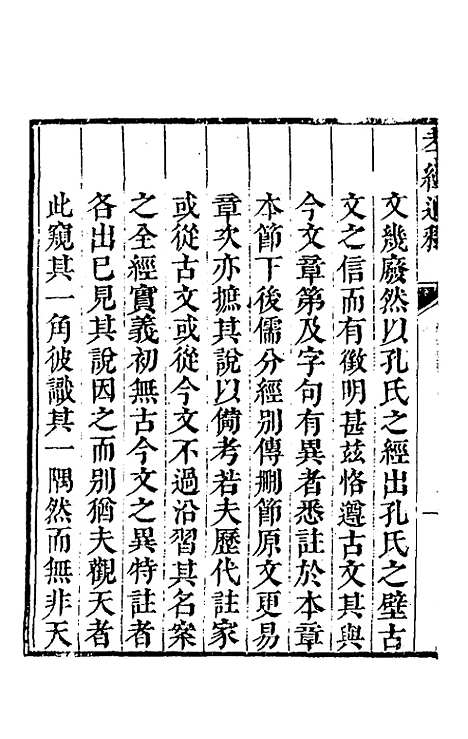 孝經通釋
一
文幾廢然以孔氏之經出孔氏之壁古
文之信而有徵明甚玆恪遵古文其與
今文章第及字句有異者悉註於本章
本節下後儒分經別傳刪節原文更易
章次亦摭其說以備考若夫歷代註家
或從古文或從今文不過沿習其名案
之全經實義初無古今文之異特註者
各出已見其說因之而別猶夫觀天者
此窺其一角彼識其一隅然而無非天